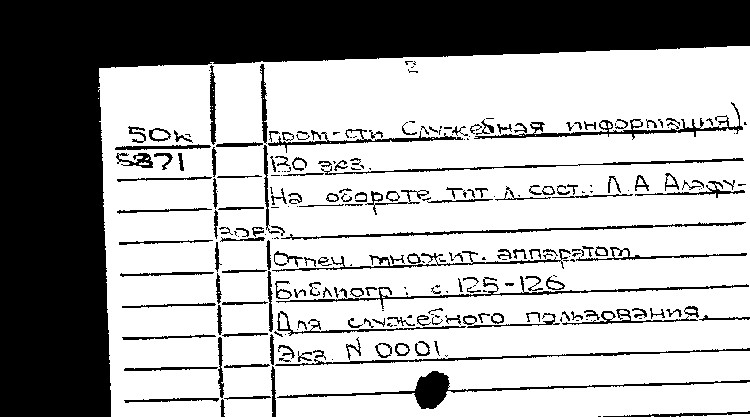 2
50к пром-сти Служебная информация).
5871 130 экз.
На обороте тит л. сост.: Л А Алафу-
зова.
Отпеч. множит. аппаратом.
Библиогр: с. 125-126
Для служебного пользования.
Экз N 0001.